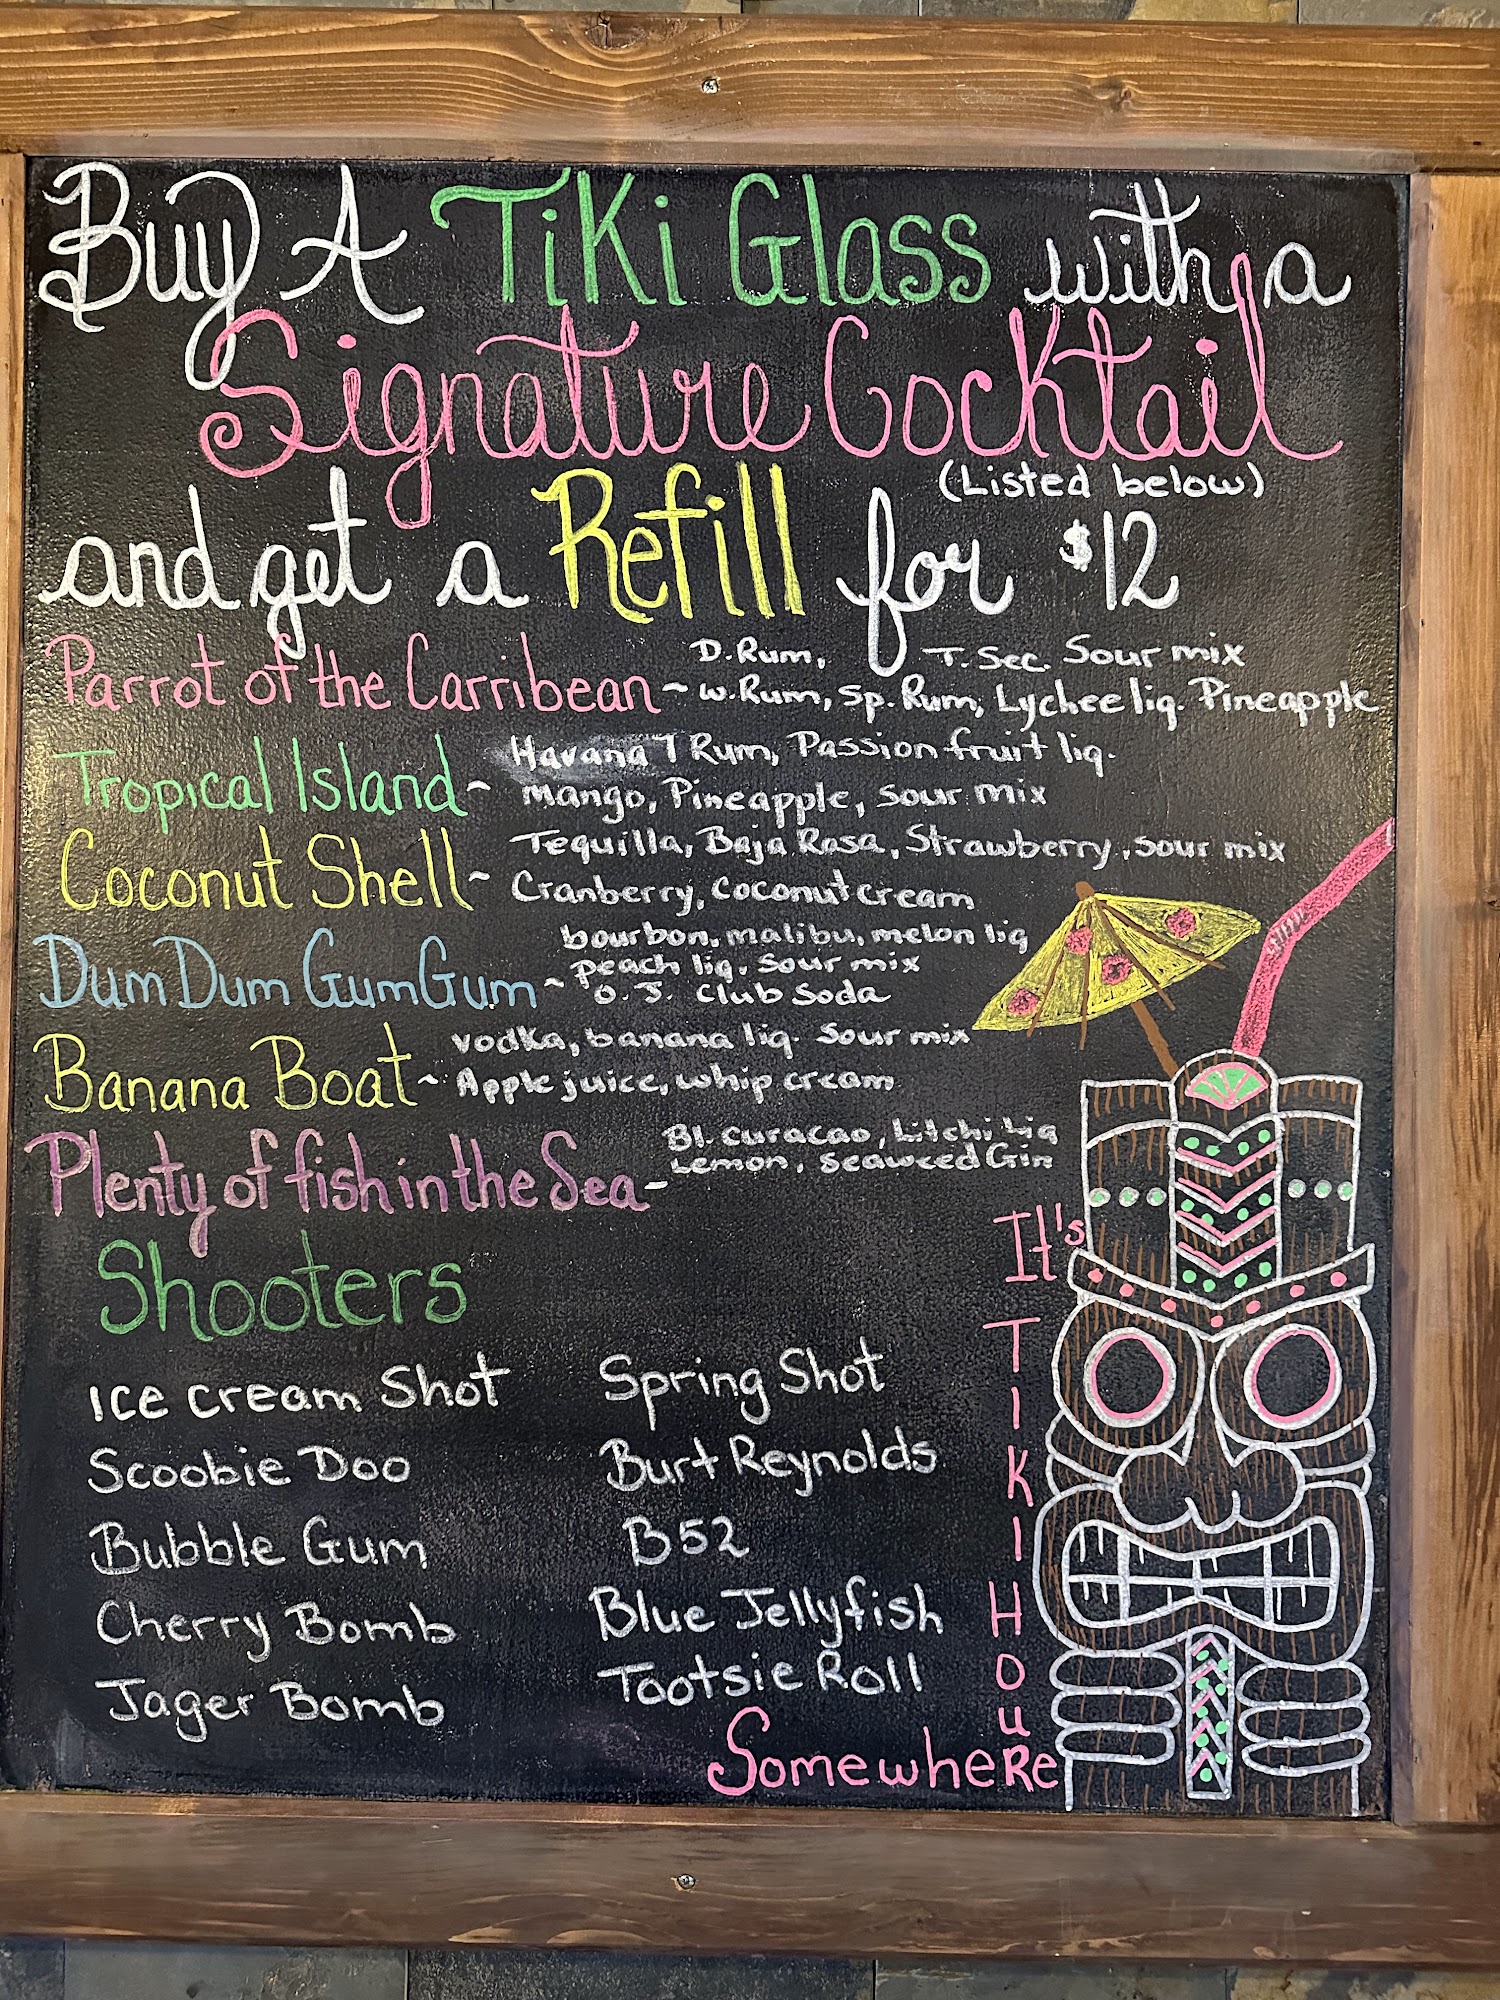 Buy A Tiki Glass with a
Signature Cocktail
(Listed below)
and get a Refill for $12
Parrot of the Carribean ~ D. Rum, T. Sec. Sour mix
w. Rum, Sp. Rum, Lychee liq. Pineapple
Tropical Island ~ Havana 7 Rum, Passion fruit liq.
mango, Pineapple, sour mix
Coconut Shell ~ Tequilla, Baja Rosa, Strawberry, sour mix
Cranberry, coconut cream
Dum Dum Gum Gum ~ bourbon, malibu, melon liq
peach liq. sour mix
O.J. club soda
Banana Boat ~ vodka, banana liq. sour mix
Apple juice, whip cream
Plenty of fish in the Sea - Bl. curacao, Litchi Liq
Lemon, seaweed Gin
Shooters
Ice cream Shot
Scoobie Doo
Bubble Gum
Cherry Bomb
Jager Bomb
Spring Shot
Burt Reynolds
B52
Blue Jellyfish
Tootsie Roll
It's
TIKI
HOUR
Somewhere